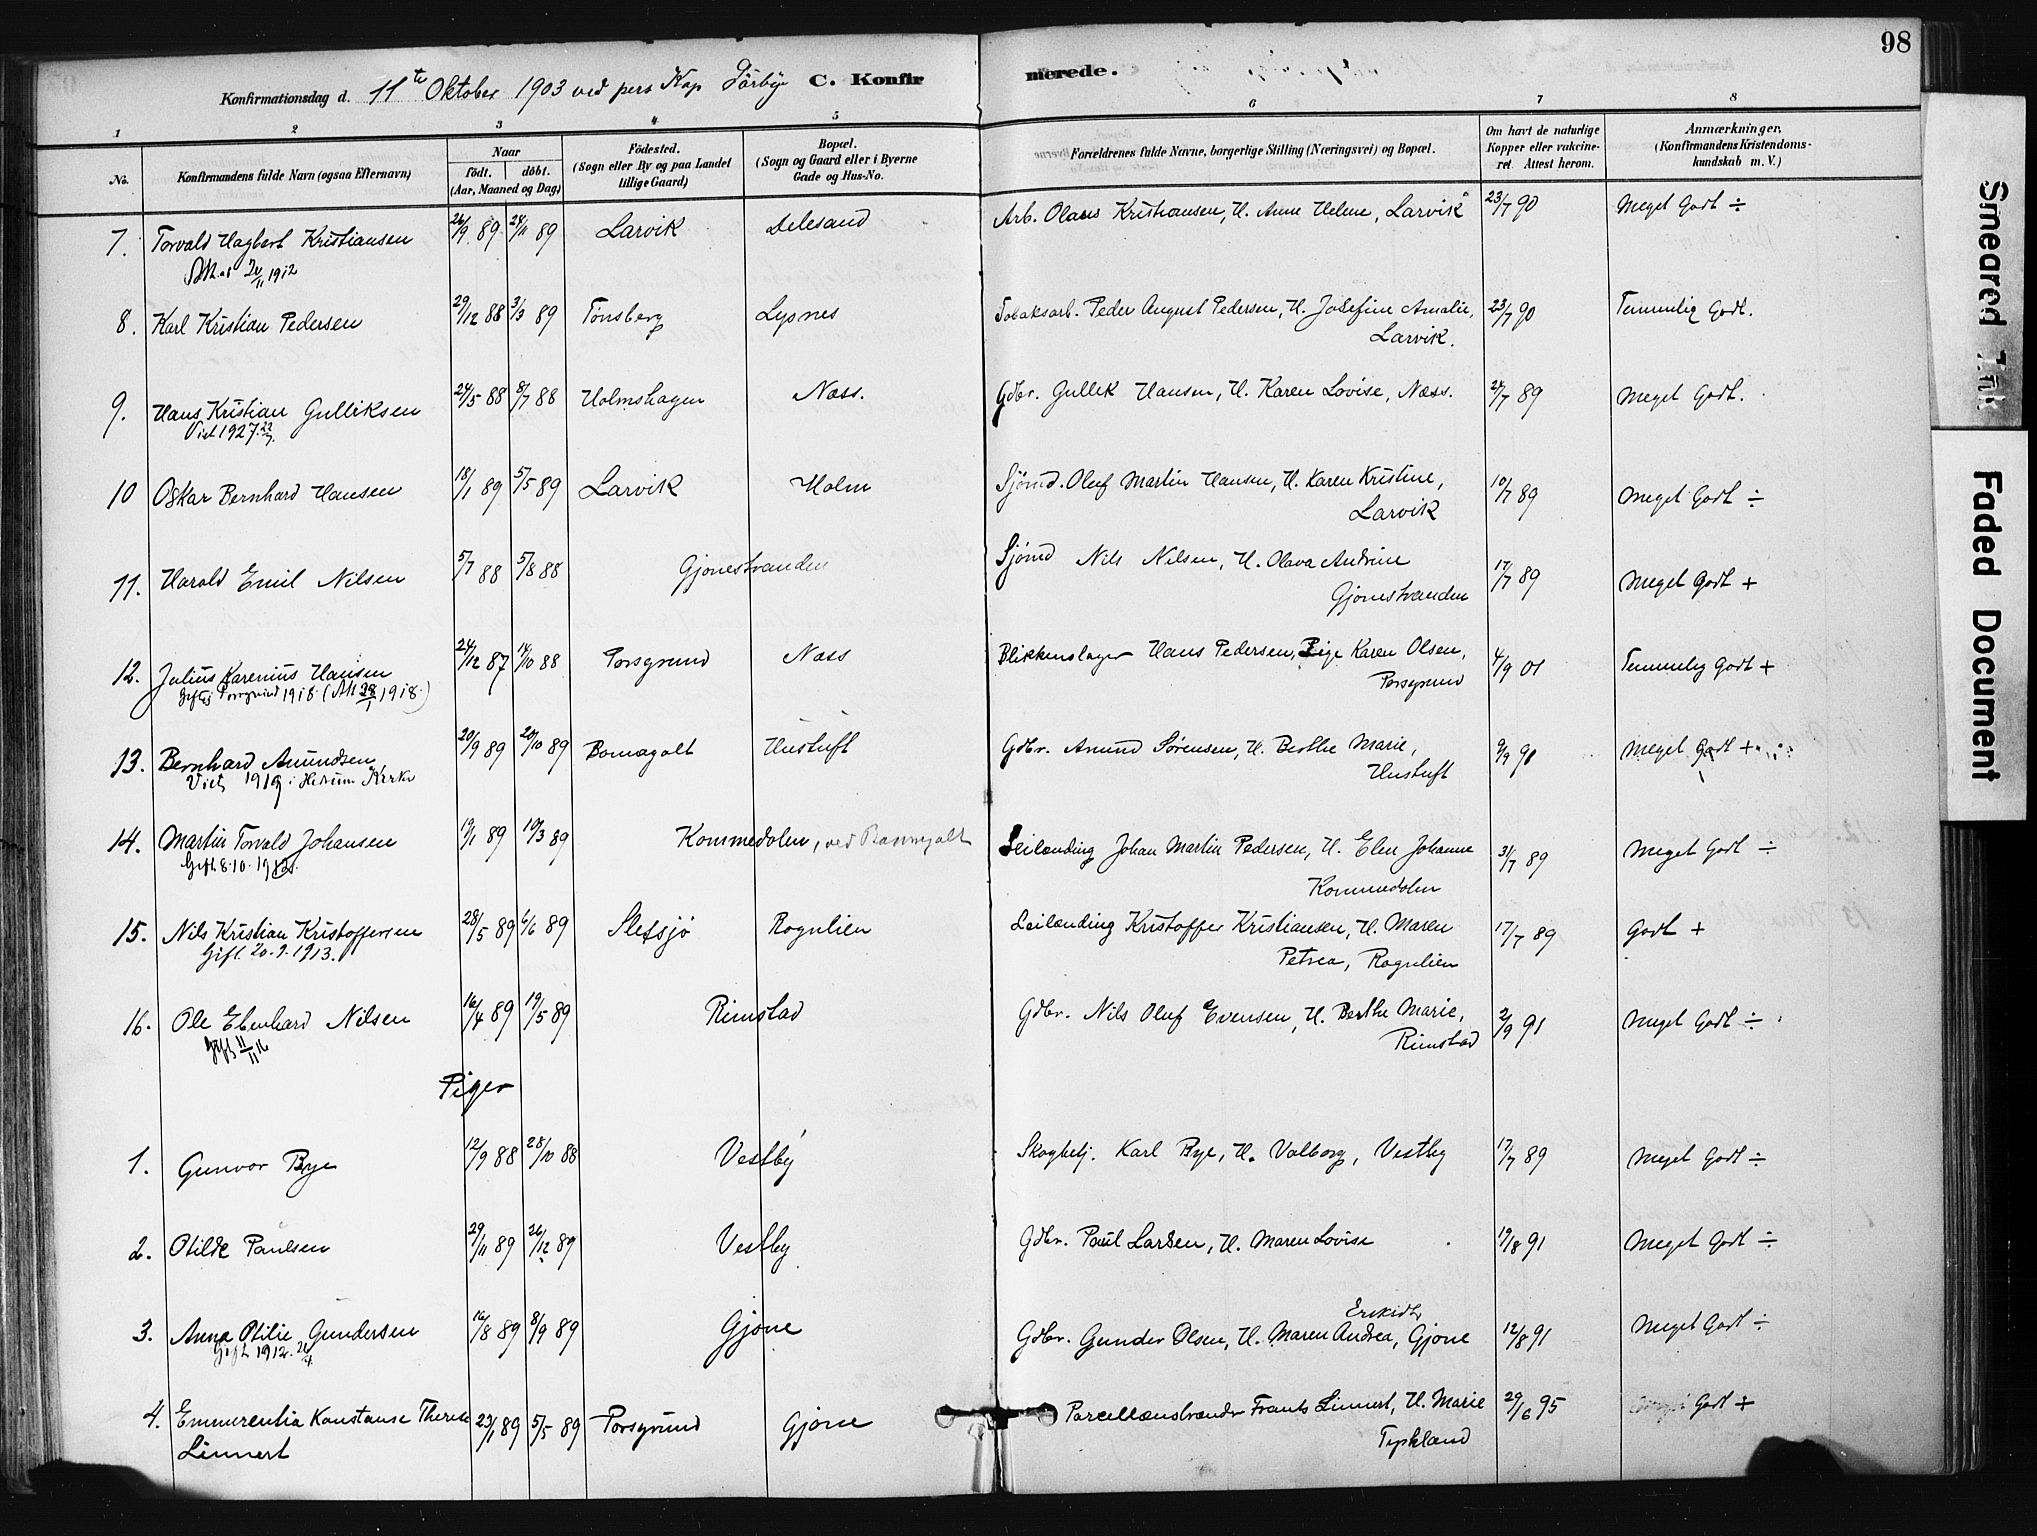 98
Konfirmationsdag d. 11te Oktober 1903 ved pers Kap C. Konfirmerede.
1 2 3 4 5 6 7 8
No. Konfirmandens fulde Navn (ogsaa Efternavn) Naar födt. döbt. (Aar, Maaned og Dag) Födested. (Sogn eller By og paa Landet tillige Gaard) Bopæl. (Sogn og Gaard eller i Byerne Gade og Hus-No. Forældrenes fulde Navne, borgerlige Stilling (Næringsvei) og Bopæl. Om havt de naturlige Kopper eller vakcineret. Attest herom. Anmærkninger. (Konfirmandens Kristendomskundskab m. V.)
7. Torvald Hagbert Kristiansen 26/9 89 24/11 89 Larvik Delesand Arb. Olaus Kristiansen, H. Anne Helene, Larvik 23/7 90 Meget Godt ÷
1912
8. Karl Kristian Pedersen 29/12 88 3/3 89 Tönsberg Lysnes Tobaksarb. Peder August Pedersen, H. Josefine Amalie, 23/7 90 Temmelig Godt.
Larvik.
9. Hans Kristian Gulliksen 24/5 88 8/7 88 Holmshagen Næss. Gdbr. Gullik Hansen, H. Karen Lovise, Næss. 24/7 89 Meget Godt.
Viet 1927 22/7.
10 Oskar Bernhard Hansen 18/1 89 5/5 89 Larvik Holm Sjömd. Oluf Martin Hansen, H. Karen Kristine, 10/7 89 Meget Godt ÷
Larvik
11. Harald Emil Nilsen 5/7 88 5/8 88 Gjonestranden Sjömd Nils Nilsen, H. Olava Andrine 17/7 89 Meget Godt +
Gjonestranden
12. Julius Karenius Hansen 24/12 87 14/10 88 Porsgrund Næss Blikkenslager Hans Pedersen, Pige Karen Olsen, 4/9 01 Temmelig Godt +
Gift i Porsgrund 1918. (Att 28/1 1918.) Porsgrund
13. Bernhard Amundsen 20/9 89 20/10 89 Bomagalt Hustuft Gdbr. Amund Sørensen, H. Berthe Marie, 9/9 91 Meget Godt +
Viet 1919 i Hedrum Kirke Hustuft
14. Martin Torvald Johansen 19/1 89 10/3 89 Kommedalen, ved Leilænding Johan Martin Pedersen, H. Elen Johanne 31/7 89 Meget Godt ÷
Gift 8.10. Kommedalen
15. Nils Kristian Kristoffersen 28/5 89 6/6 89 Slefsjö Rognlien Leilænding Kristoffer Kristiansen, H. Maren 17/7 89 Godt +
Gift. 20.9.1913. Petrea, Rognlien
16. Ole Ebenhard Nilsen 16/4 89 19/5 89 Rimstad Gdbr. Nils Oluf Evensen, H. Berthe Marie, 2/9 91 Meget Godt ÷
Gift 11/11 16 Rimstad
Piger
1. Gunvor Bye 12/9 88 28/10 88 Vestby Skogbetj. Karl Bye, H. Valborg, Vestby 17/7 89 Meget Godt ÷
2. Otilde Paulsen 29/11 89 26/12 89 Vestby Gdbr. Paul Larsen, H. Maren Lovise 19/8 91 Meget Godt ÷
Eriksdt.
3. Anna Otilie Gundersen 16/8 89 8/9 89 Gjone Gdbr. Gunder Olsen, H. Maren Andrea, Gjone 12/8 91 Meget Godt ÷
Gift 1912.
4. Emmerentia Konstanse Therese 23/1 89 5/5 89 Porsgrund Gjone Parcellænsbrænder Frants Linnert, H. Marie 29/6 95 Godt +
Linnert Tyskland
Smeared Ink
Faded Document